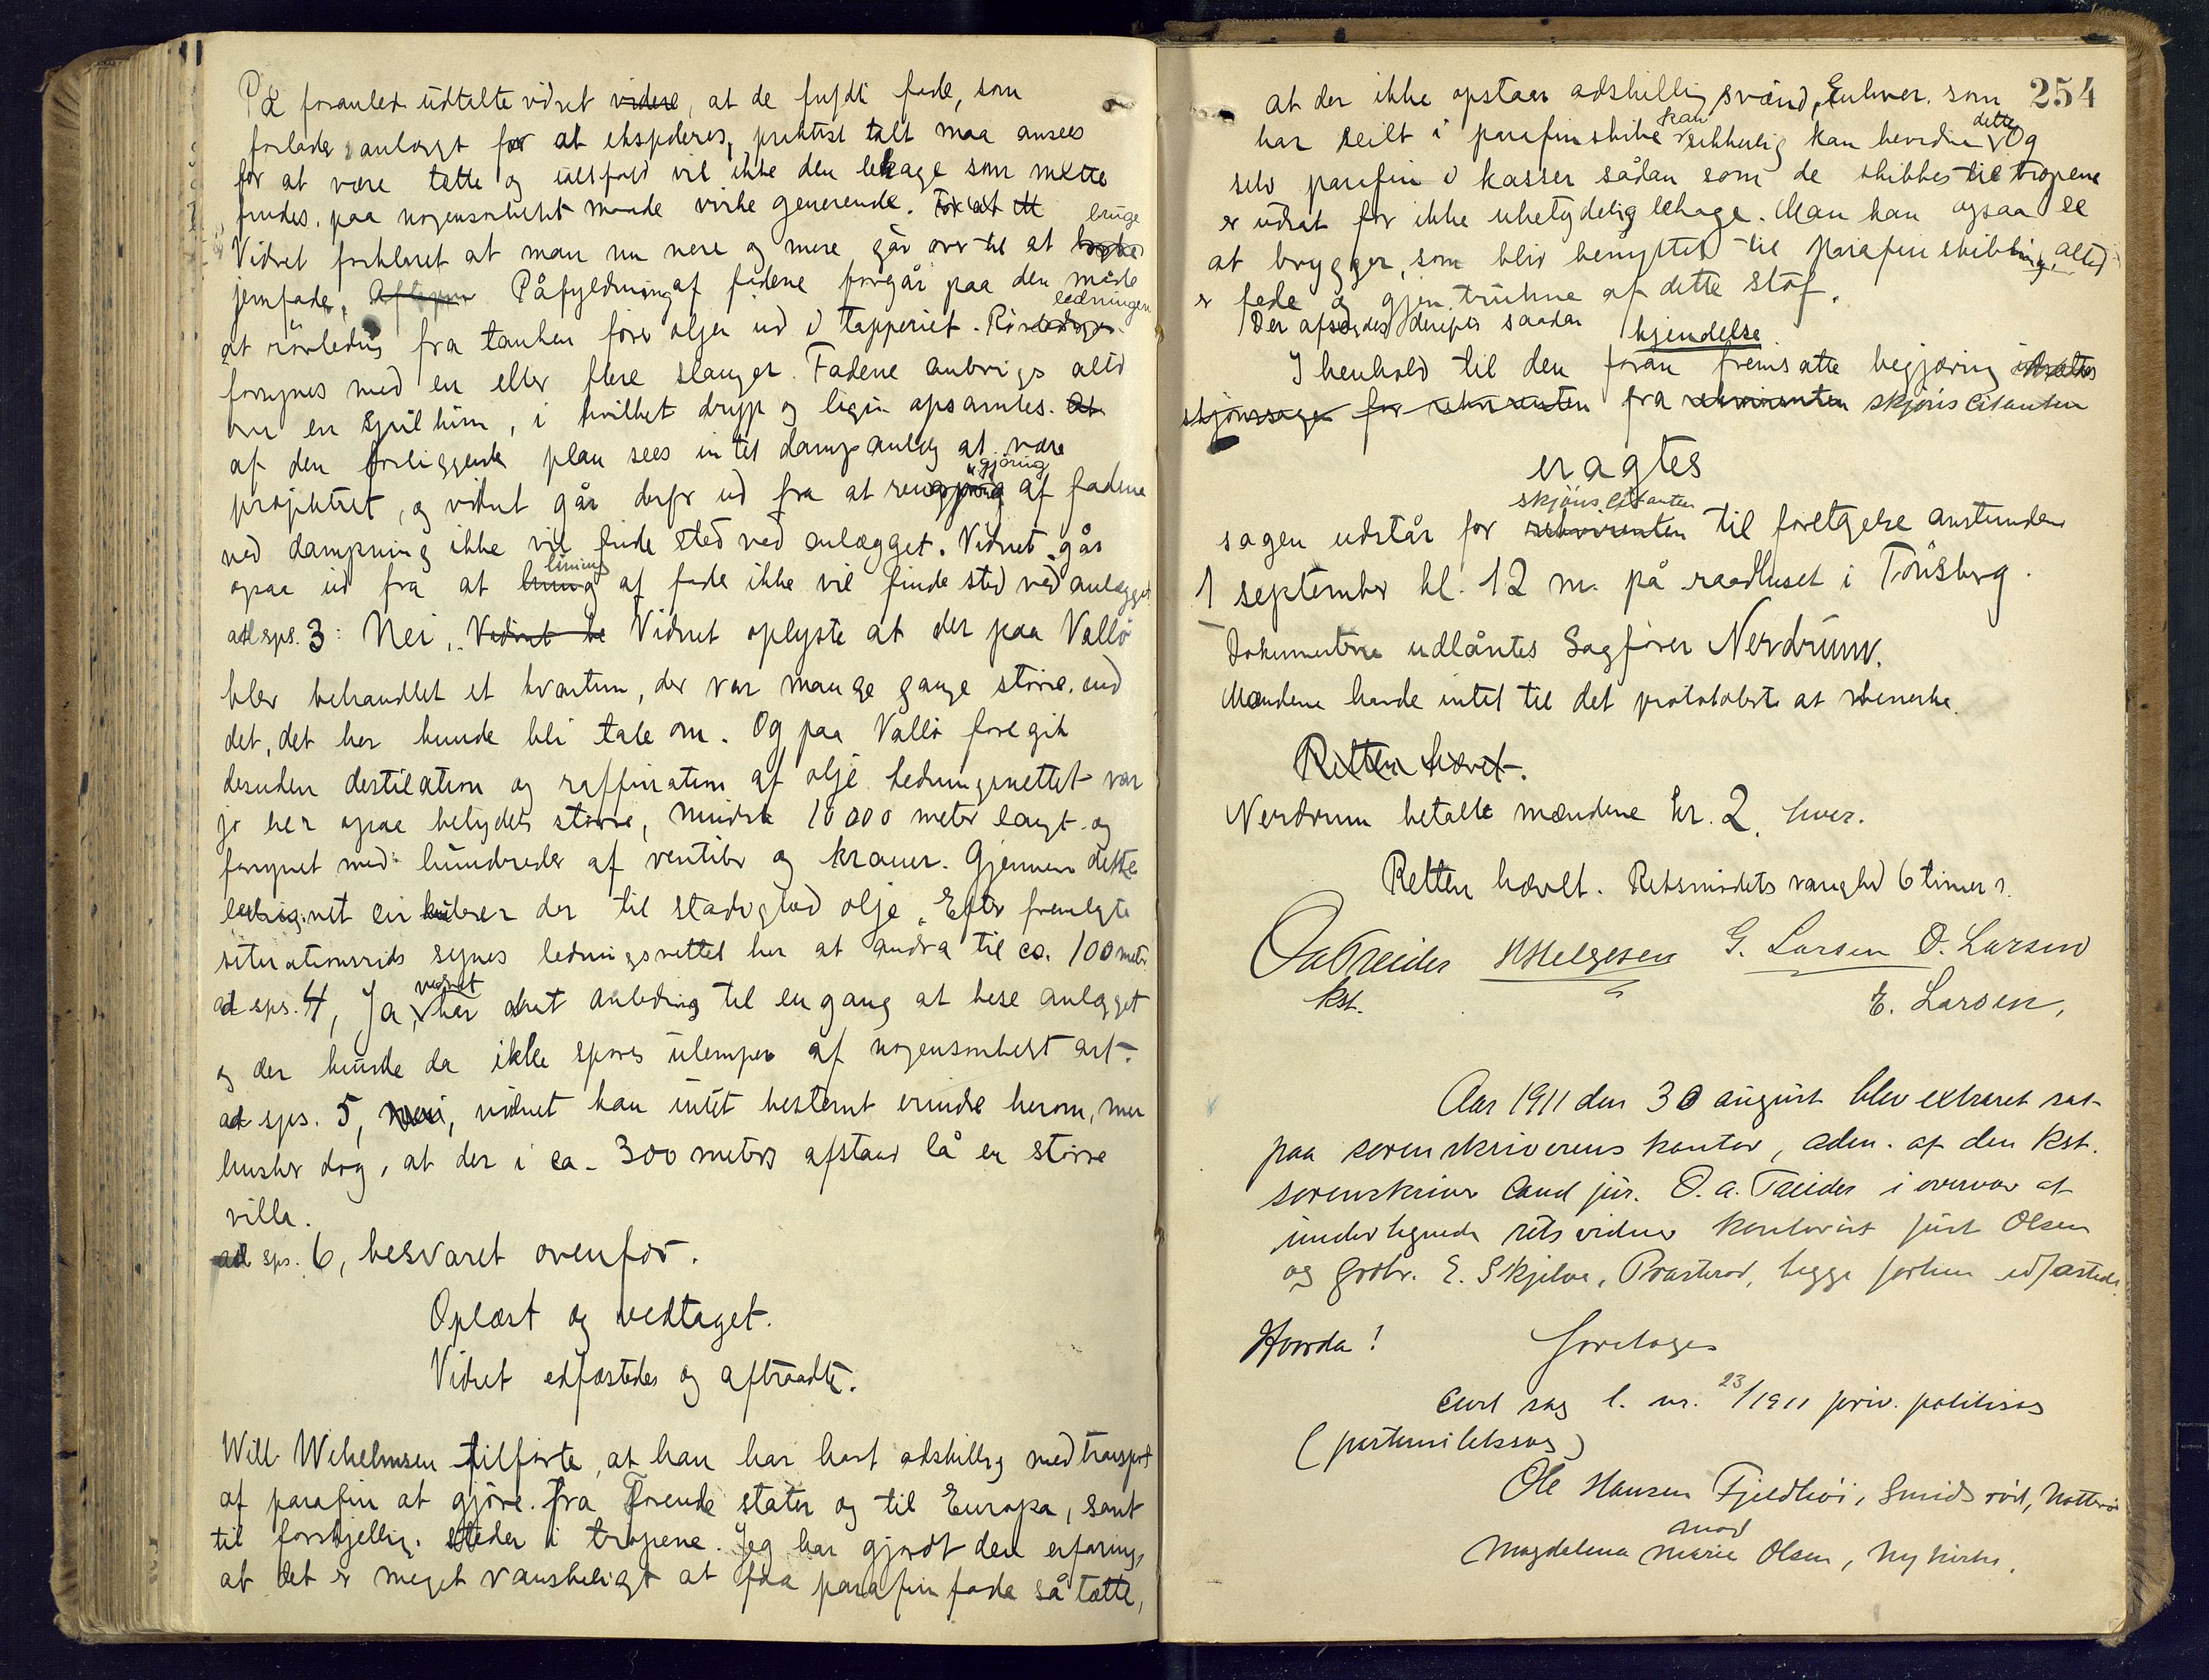 På foranled. udtalte vidnet videre, at de fuldte fade, som
forlader anlægget for at ekspederes, praktisk talt maa ansees
for at være tætte og ialfald vil ikke den lekage som måtte
findes, paa nogensomhelst maade virke generende. For at et
Vidnet forklaret at man nu mere og mere går over til at bruge
jernfade. Aftapn Påfyldning af fadene forgår paa den måde
at rörledning fra tanken fører oljen ud i tapperiet. Rörledningen
forsynes med en eller flere slanger. Fadene anbrigs altid
over en spilkum, i hvilket dryp og lign opsamles. At
af den foreliggende plan sees intet dampanlæg at være
projekteret, og vidnet går derfor ud fra at rengjøring af fadene
ved dampning ikke vil finde sted ved anlægget. Vidnet går
ogsaa ud fra at liming af fade ikke vil finde sted ved anlægget
ad sps. 3: Nei. Vidnet be Vidnet oplyste at der paa Vallö
blev behandlet et kvantum, der var mange gange större end
det, det her kunde bli tale om. Og paa Vallö foregik
desuden destilation og raffination af olje. Ledningsnettet var
jo her ogsaa betydelig större, mindst 10 000 meter langt og
forsynet med hundreder af ventiler og kraner. Gjennem dette
ledningsnet cirkulerer der til stadighed olje. Efter fremlagte
situationsrids synes ledningsnettet her at andra til ca. 100 meter
ad sps. 4, Ja, vidnet har havt anledning til engang at bese anlægget
og der kunde da ikke spores ulemper af nogensomhelst art.
ad sps. 5, Nei, vidnet kan intet bestemt erindre herom, men
husker dog, at der i ca. 300 meters afstand lå en större
villa.
ad sps. 6, besvaret ovenfor.
Oplæst og vedtaget.
Vidnet edfæstedes og aftraadte.
Will. Wilhelmsen tilførte, at han har havt adskillig med transport
af parafin at gjöre fra Forende stater og til Europa, samt
til forskjellig. steder i tropene. Jeg har gjordt den erfaring,
at det er meget vanskeligt at faa parafinfade så tætte,
254
at der ikke opstaar adskillig svind. Enhver som
har seilt i parafinskibe kan sikkerlig kan bevidne dette. Og
selv parafin i kasser sådan som de skibbes til tropene
er udsat for ikke ubetydelig lekage. Man kan ogsaa se
at brygger, som blir benyttet til parafinskibbning, altid
er fede og gjentrukne af dette stof.
Der afsagdes derefter saadan kjendelse
I henhold til den foran fremsatte begjæring udsættes
skjönssagen for rekvirenten fra rekvirenten skjöns citanten
eragtes
sagen udstår for rekvirenten skjöns citanten til foretagelse anstundende
1 september kl. 12 m. på raadhuset i Tönsberg.
Dokumenterne udlåntes Sagfører Nerdrum.
Mændene havde intet til det protokolerte at bemerke.
Retten hævet.
Nerdrum betalte mændene kr. 2, hver.
Retten hævet. Retsmödets varighed 6 timer.
O A Treider H Helgesen G. Larsen O. Larsen
kst. E. Larsen,
Aar 1911 den 30 august blev extraret sat
paa sorenskriverens kontor, adm. af den kst.
sorenskriver Cand jur. O. A. Treider i overvær af
undertegnede retsvidner kontorist Just Olsen
og grdbr. E. Skjelvø, Præsterød, begge forhen edfæstede.
Hvorda! foretoges
Civil sag l. nr. 23/1911 priv. politisag
(paternitetssag)
Ole Hansen Fjeldhöi, Smidsröd, Nötterö
mod
Magdalena Marie Olsen, Nykirke.